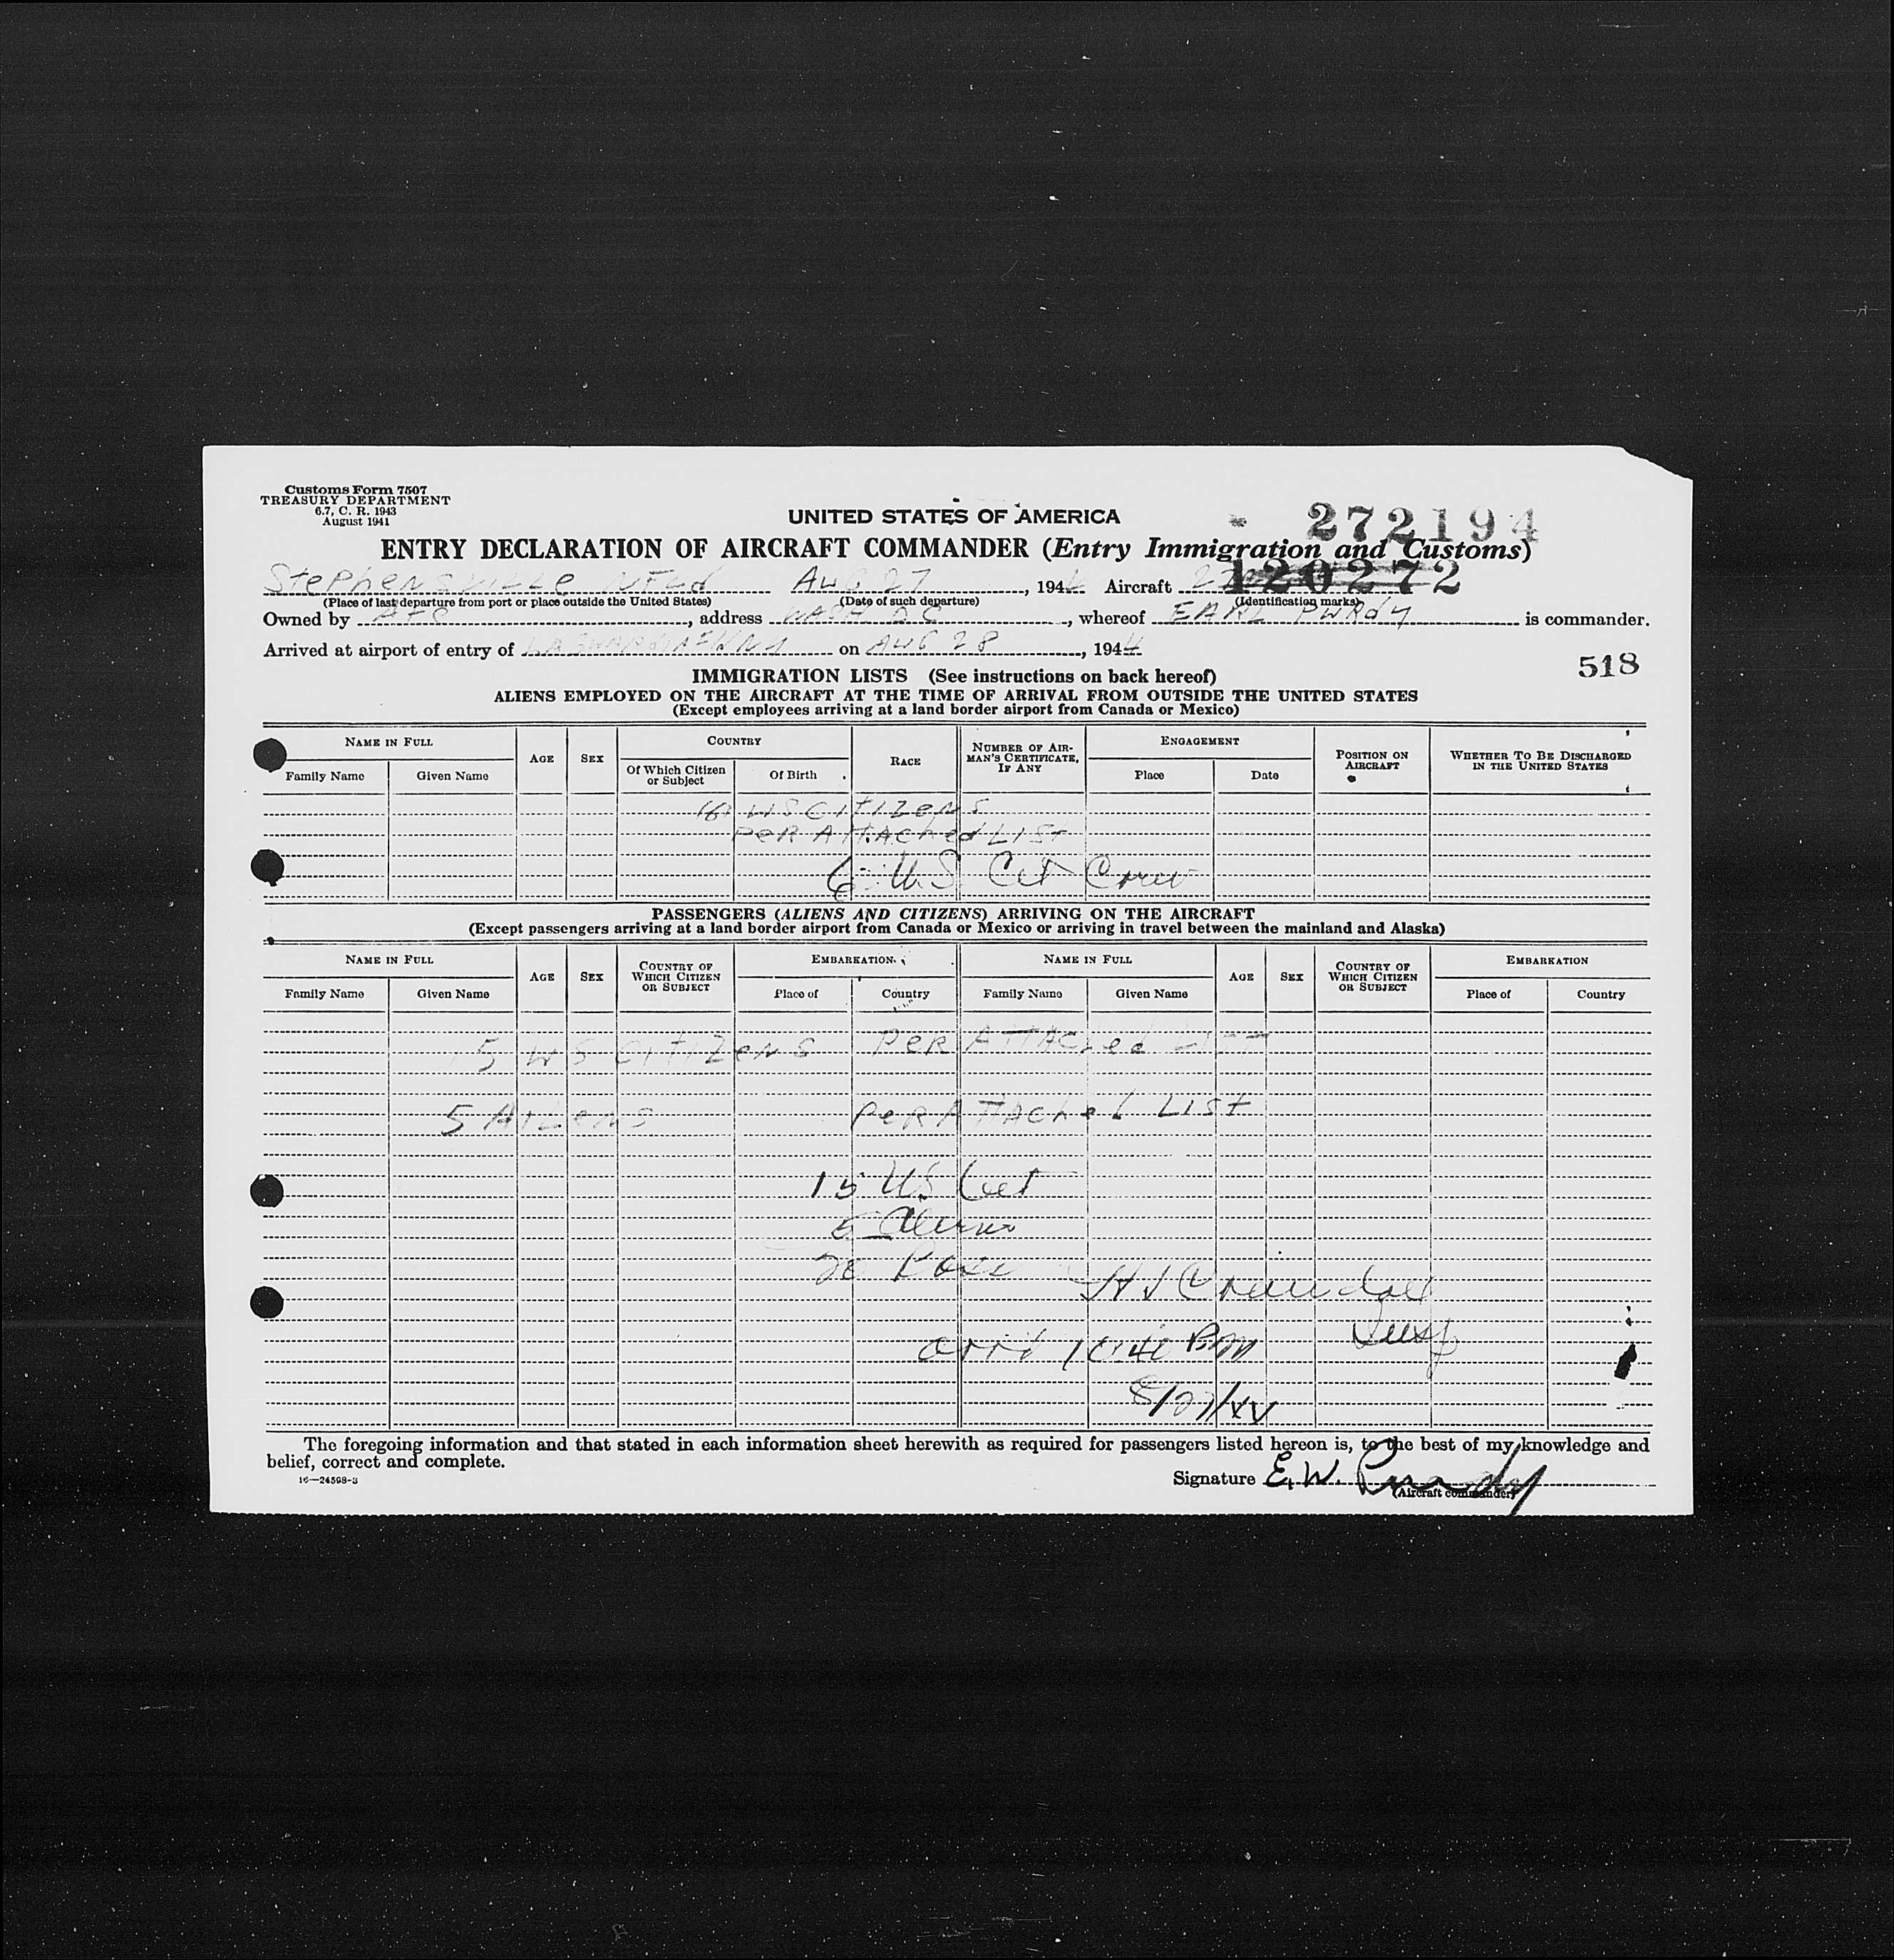 Customs Form 7507
TREASURY DEPARTMENT
6.7, C. R. 1943
August 1941
UNITED STATES OF AMERICA
272194
ENTRY DECLARATION OF AIRCRAFT COMMANDER (Entry Immigration and Customs)
120272
Stephensville NFLd AUG 27, 194 Aircraft
(Place of last departure from port or place outside the United States) (Date of such departure) (Identification marks)
Owned by ATC, address WASH DC, whereof EARL PURdy is commander.
Arrived at airport of entry of LAGUARDIA FLD NY on AUG 28, 1944
518
IMMIGRATION LISTS (See instructions on back hereof)
ALIENS EMPLOYED ON THE AIRCRAFT AT THE TIME OF ARRIVAL FROM OUTSIDE THE UNITED STATES
(Except employees arriving at a land border airport from Canada or Mexico)
NAME IN FULL AGE SEX COUNTRY RACE NUMBER OF AIRMAN'S CERTIFICATE, IF ANY ENGAGEMENT POSITION ON AIRCRAFT WHETHER TO BE DISCHARGED IN THE UNITED STATES
Family Name Given Name Of Which Citizen or Subject Of Birth Place Date
US CITIZENS
PER ATTACHED LIST
6 U.S. Cit Crew
PASSENGERS (ALIENS AND CITIZENS) ARRIVING ON THE AIRCRAFT
(Except passengers arriving at a land border airport from Canada or Mexico or arriving in travel between the mainland and Alaska)
NAME IN FULL AGE SEX COUNTRY OF WHICH CITIZEN OR SUBJECT EMBARKATION NAME IN FULL AGE SEX COUNTRY OF WHICH CITIZEN OR SUBJECT EMBARKATION
Family Name Given Name Place of Country Family Name Given Name Place of Country
15 US CITIZENS PER ATTACHED LIST
5 ALIENS PER ATTACHED LIST
15 US Cit
5 Aliens
20 Pass
H J Crandall
Insp
arrd 10:40 PM
8/27/44
The foregoing information and that stated in each information sheet herewith as required for passengers listed hereon is, to the best of my knowledge and
belief, correct and complete.
16—24598-3
Signature E. W. Purdy
(Aircraft commander)